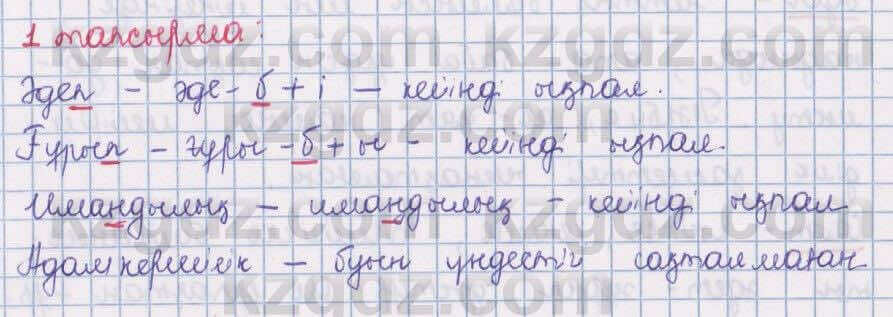 1 тапсырма:
Әдеп - әде-б+і - кейінді ықпал.
Ғұрып - ғұры-б+ы - кейінді ықпал.
Имандылық - имандылық - кейінді ықпал
Адамкершілік - буын үндестігі сақталмаған
kzgdz.com